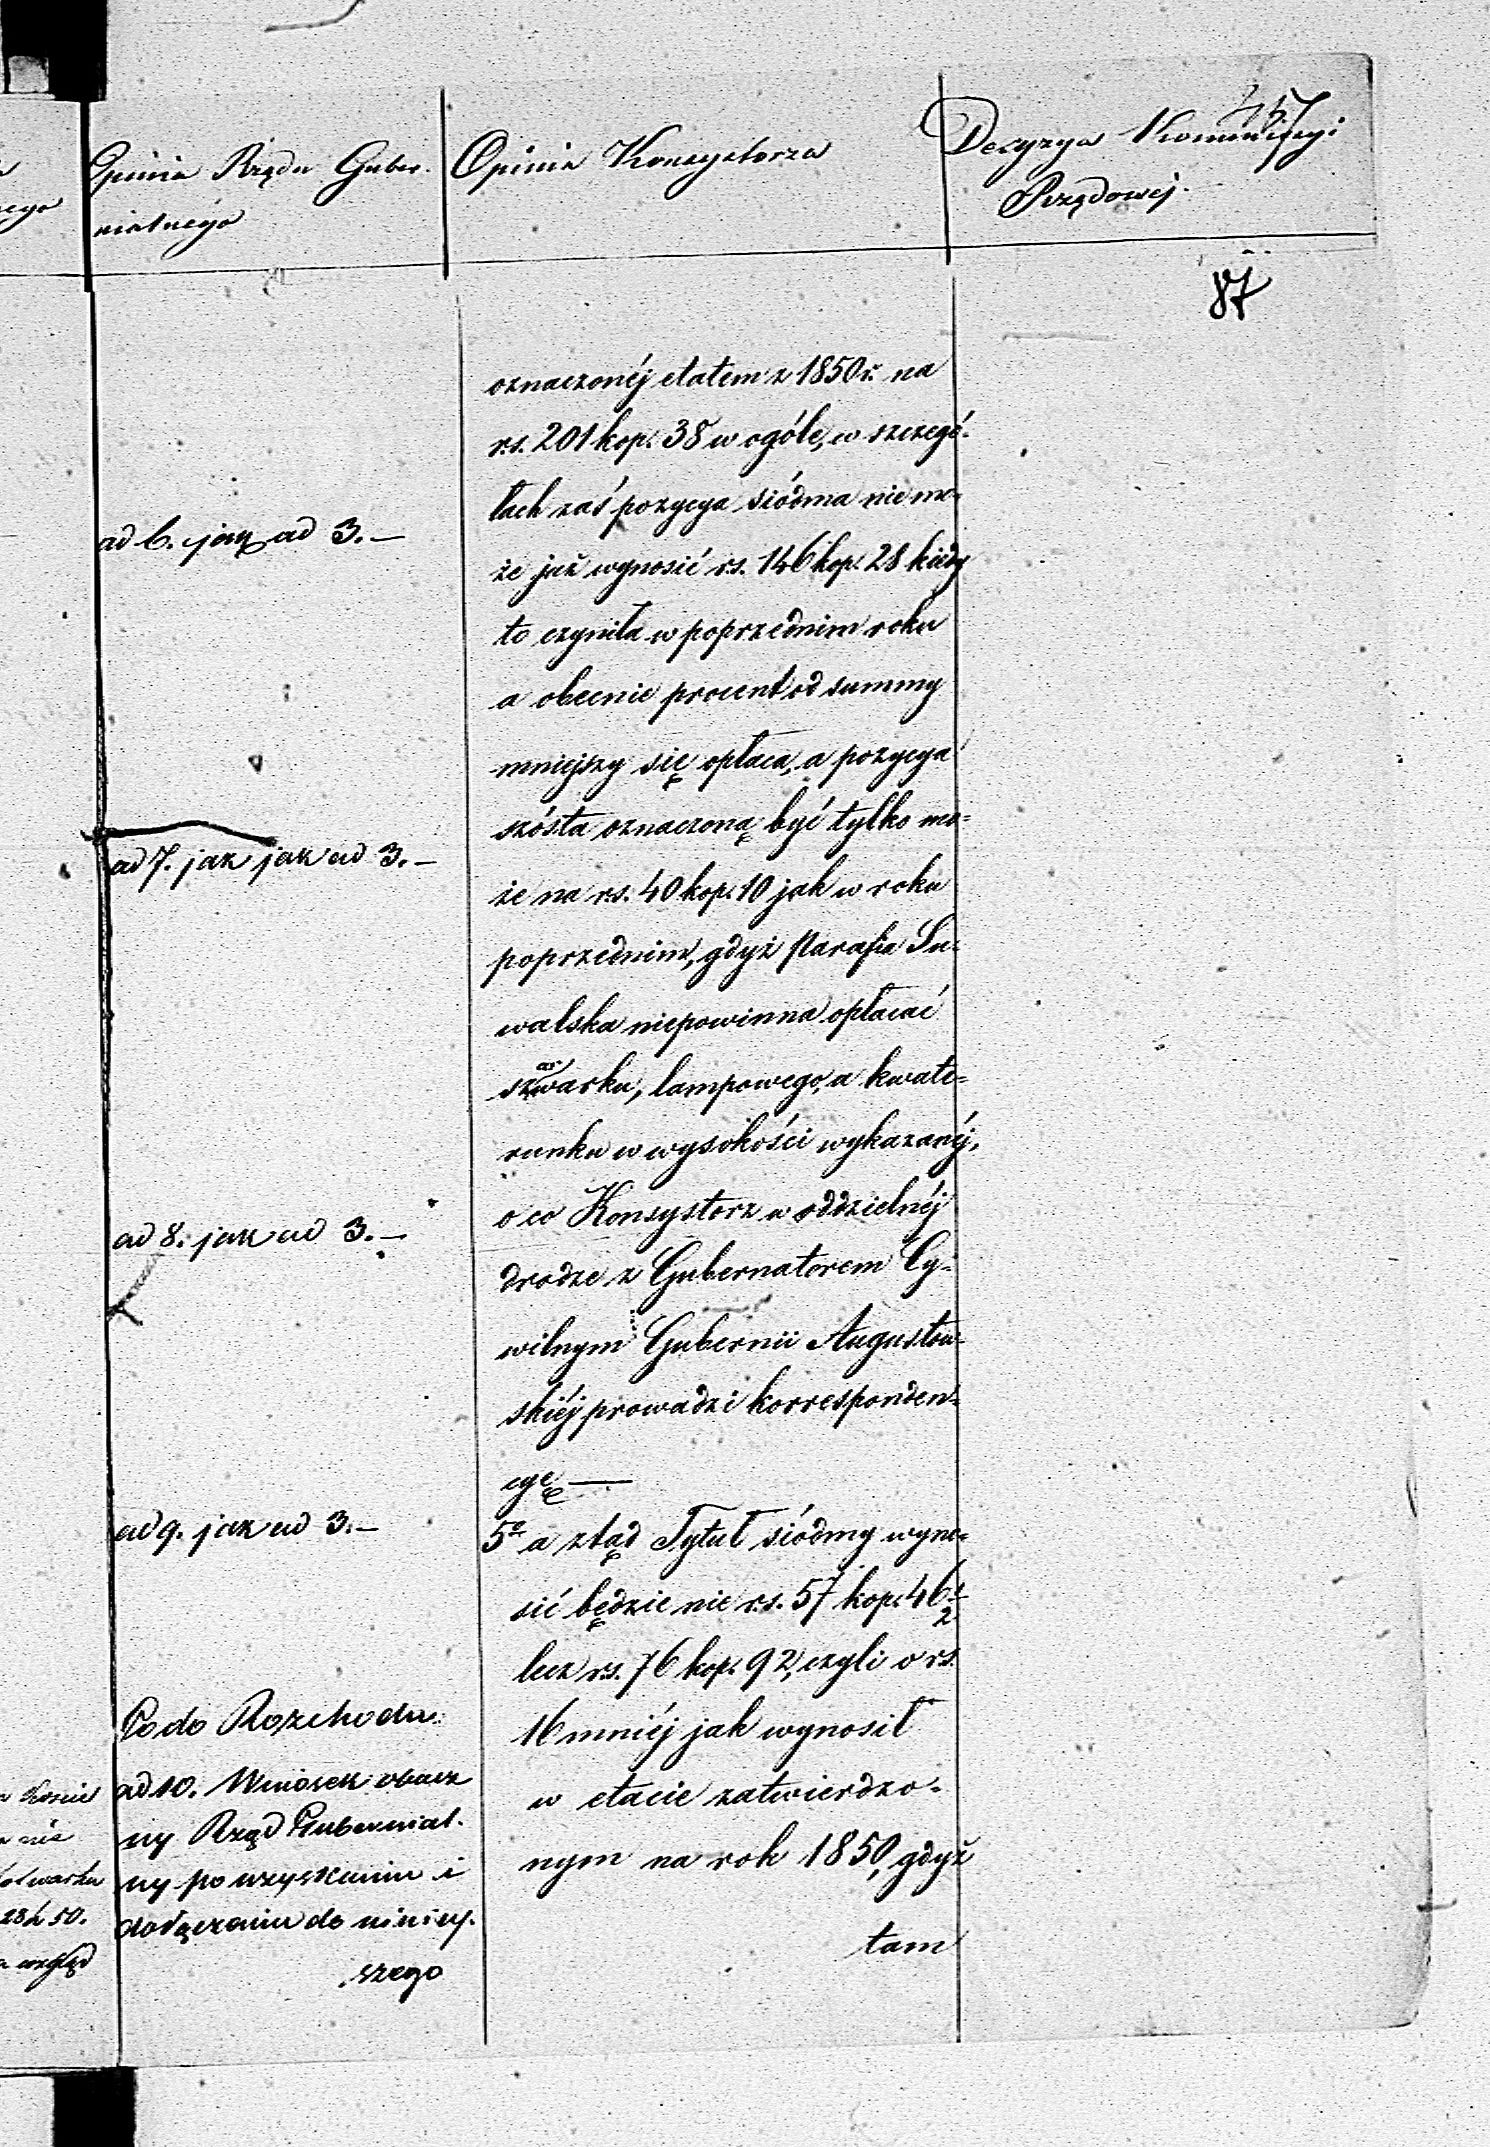 457
Opinia Rządu Guber.
nialnego
Opinia Konsystorza
Decyzya Kommissyi
Rządowéj.
87
ad 6. jak ad 3.—
ad 7. jak jak ad 3.—
ad 8. jak ad 3.—
ad 9. jak ad 3.—
Co do Rozchodu
ad 10. Wniosek obacz
ny Rząd Gubernial.
ny po uzyskaniu i
dołączeniu do niniey.
szego
oznaczonéj etatem z 1850 r. na
rs. 201 kop. 38 w ogóle, w szczegó-
łach zaś pozycya siódma nie mo-
że już wynosić rs. 146 kop. 28 kiedy
to czyniła w poprzednim roku
a obecnie procent od summy
mniejszy się opłaca, a pozycya
szósta oznaczoną być tylko mo-
że na rs. 40 kop. 10 jak w roku
poprzednim, gdyż Parafia Su-
walska niepowinna opłacać
szarwarku, lampowego, a kwate-
runku w wysokości wykazanéj,
o co Konsystorz w oddzielnéj
drodze z Gubernatorem Cy-
wilnym Gubernii Augustow-
skiéj prowadzi korresponden-
cyę —
5º a ztąd Tytuł siódmy wyno-
sić będzie nie rs. 57 kop. 46 1/2
lecz rs. 76 kop. 92, czyli o rs.
16 mniéj jak wynosił
w etacie zatwierdzo-
nym na rok 1850, gdyż
tam
nie
28 k 50.
wzgląd